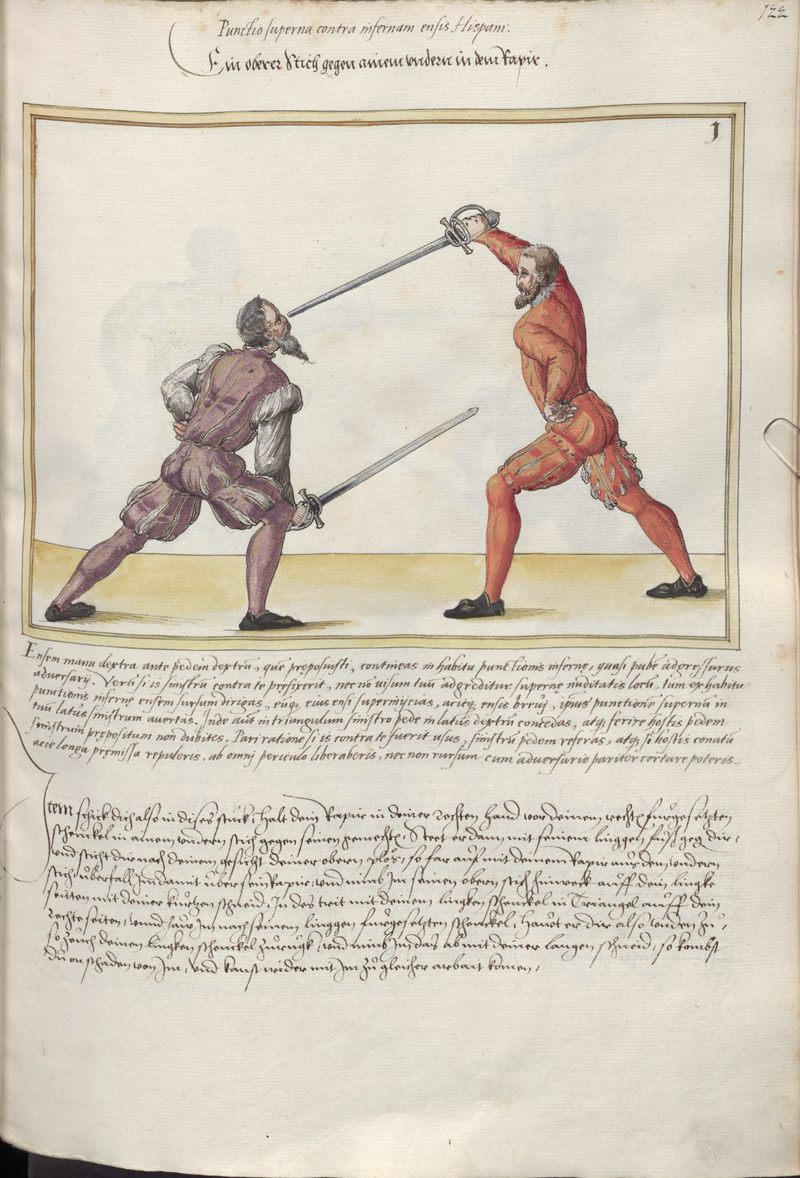 122
Punctio superna contra infernam ensis Hispani.
Ein oberer Stich gegen ainem undern in dem Rapir.
1
Ensem manu dextra ante pedem dextrū, quē preposuisti, contineas in habitu punctionis infernę, quasi pubē adgressurus
adversarij. Verū si is sinistrū contra te prefixerit, nec nō visum tuū adgreditur supernę nuditatis loco, tum ex habitu
punctionis infernę ensem sursum dirigas, eūq, eius ensi superinijcias, acieq, ensis brevi, ipius punctionē supernā in
tuū latus sinistrum avertas. Inde aūt in triangulum sinistro pede in latus dextrū concedas, atq, ferire hostis pedem
sinistrum prepositum non dubites. Pari ratione si is contra te fuerit usus, sinistrū pedem referas, atq, si hostis conatū
acie longa premissa repuleris, ab omni periculo liberaberis, nec non rursum cum adversario pariter certare poteris.
Item schick dich also in dises stuckh, halt dein Rapir in deiner rechten hand vor deinem rechtn furgesetzten
schenckel in ainem undern stich gegen seinen gemechte, Steet er dann mit seinem linggen fuß geg dir,
und sticht dir nach deinem gesicht deiner obern plos, so far auf mit deinem Rapir aus dem undern
stich, uberfall Im damit uber sein Rapir, und nimb Im seinen obern stich hinweck auff dein lingke
seitten mit deiner kurtzen schneid, In des trit mit deinem lingken schenckel in Triangel auff dein
rechte seiten, unnd haw Im nach seinem linggen furgesetzten schenckel, Hawt er dir also unden zu,
so zeuch deinen lingken schenckel zurugk, und nimb Im das ab mit deiner langen schneid, so kombst
du on schaden von Im, und kanst wider mit Im zu gleicher arbait komen,